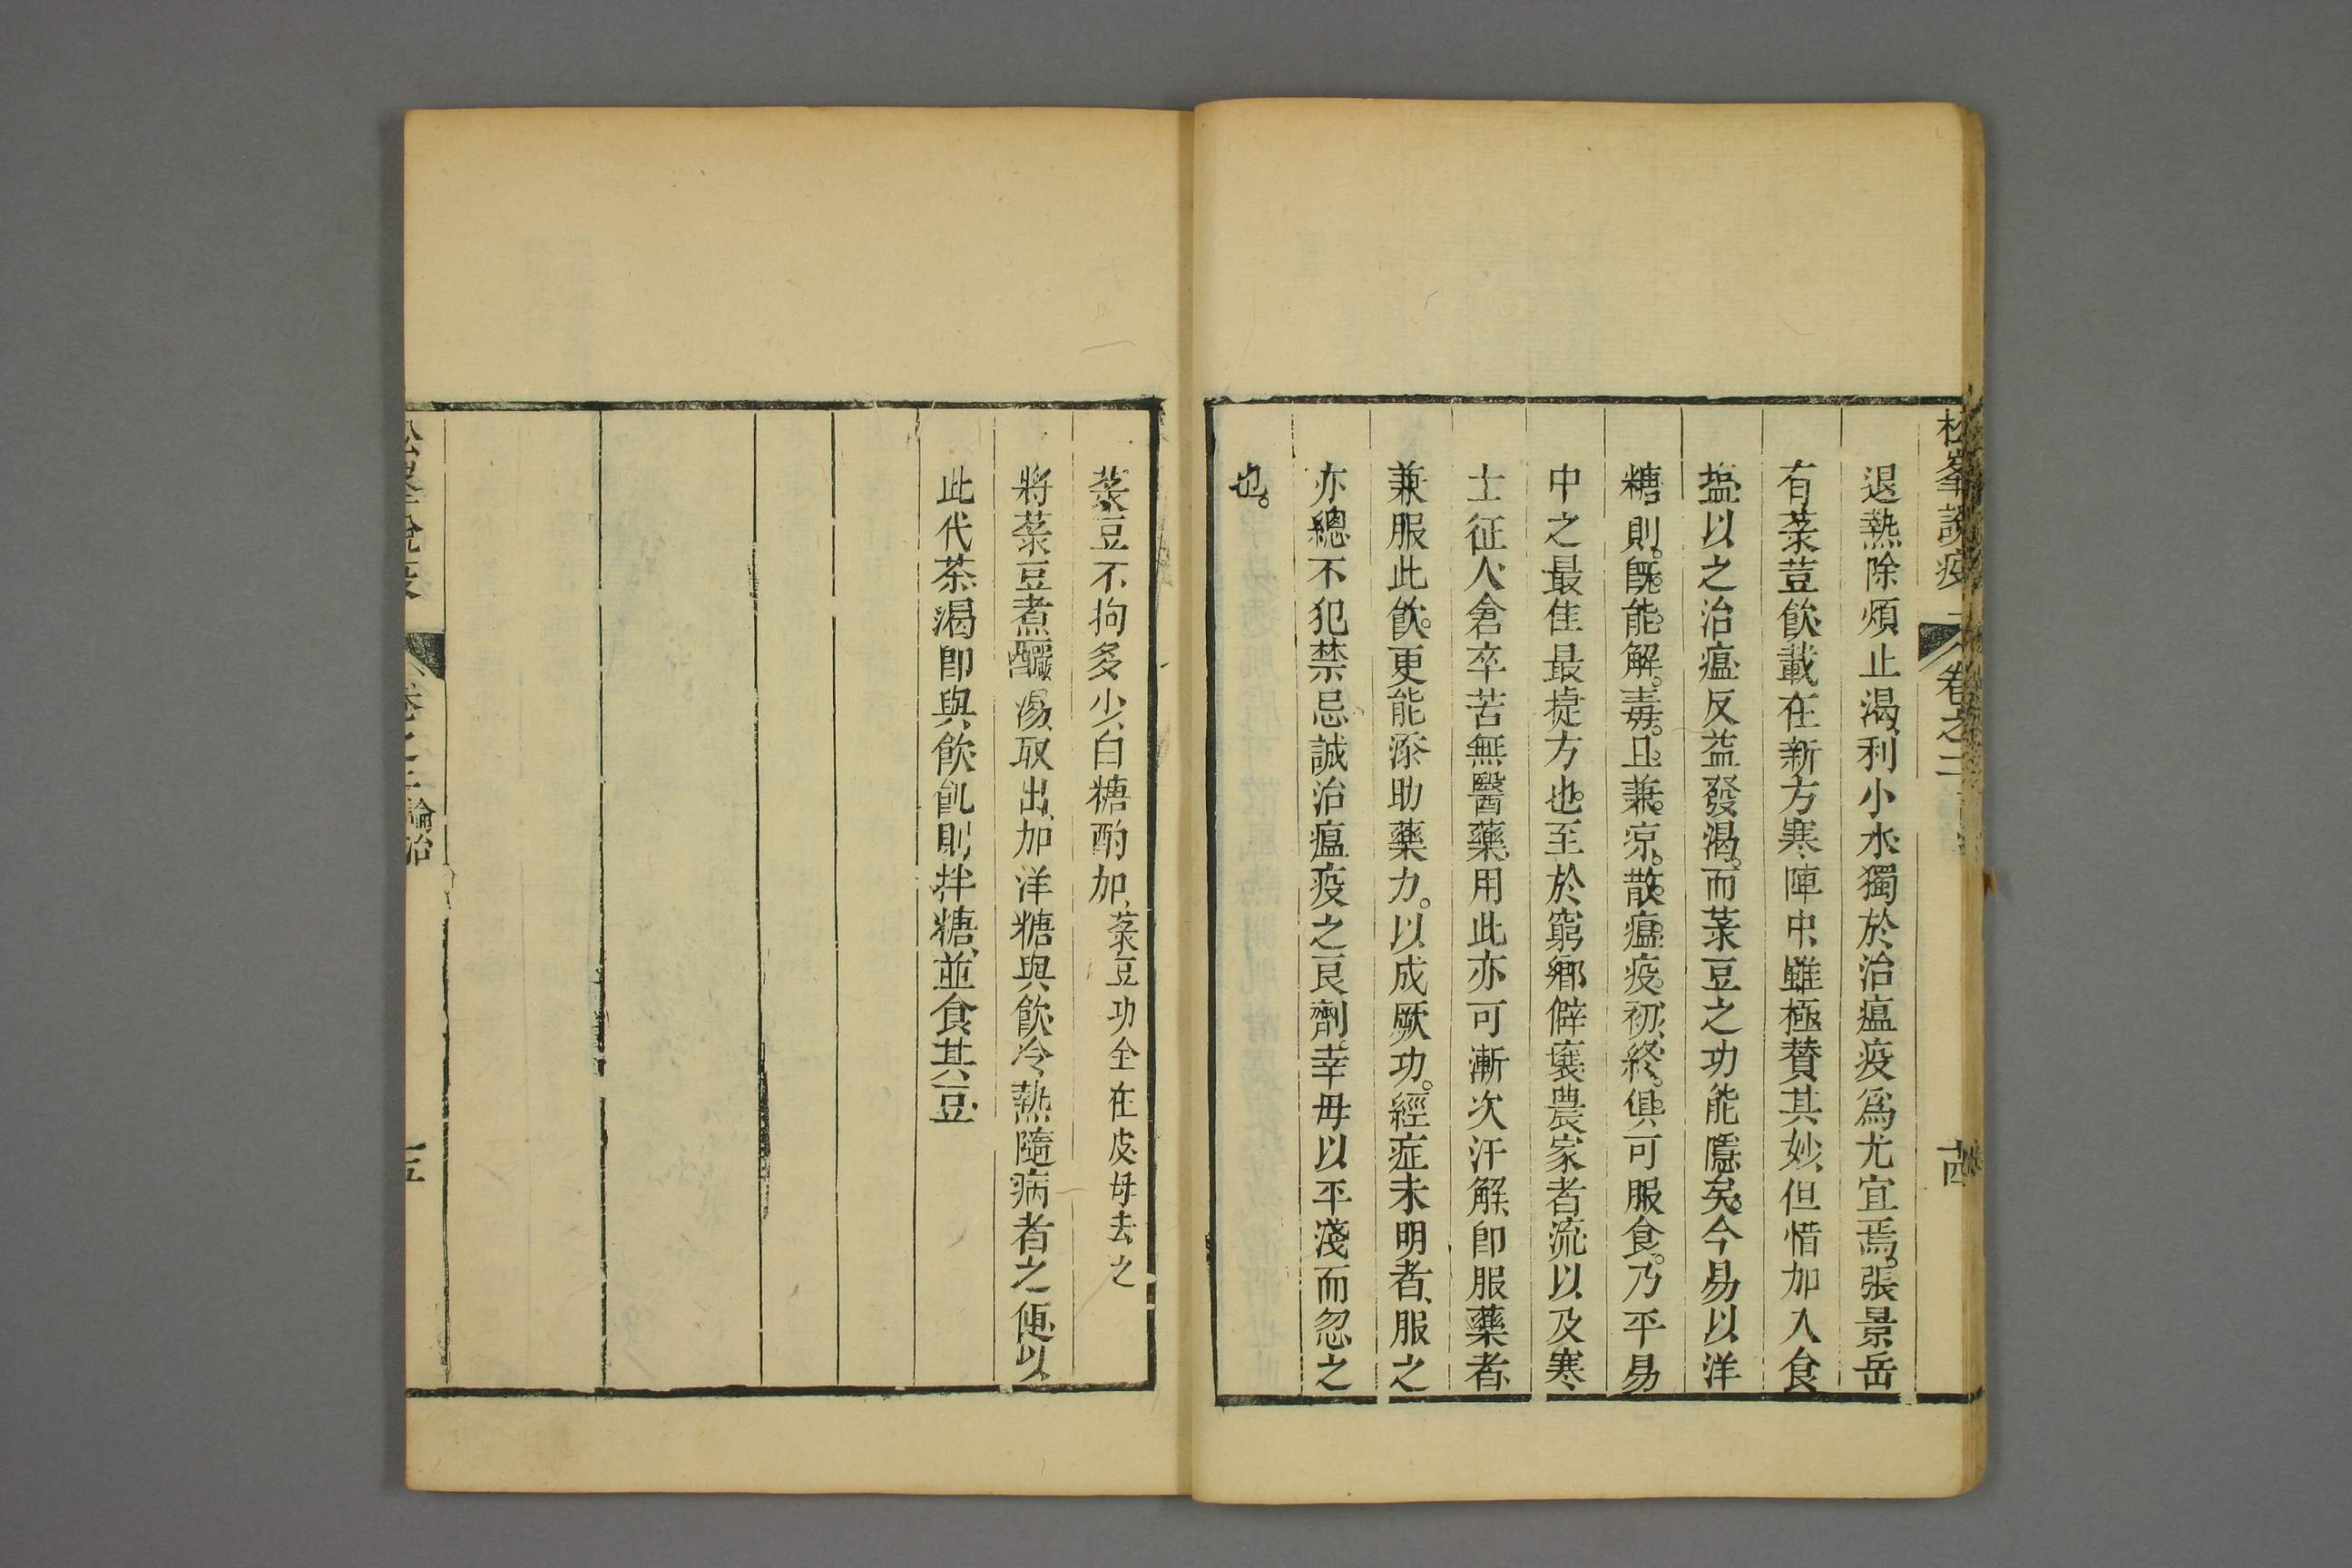 松峯說疫
卷之二
十四
退熱除煩止渴利小水獨於治瘟疫爲尤宜焉張景岳
有菉荳飲載在新方寒陣中雖極贊其妙但惜加入食
塩以之治瘟反益發渴而菉豆之功能隱矣今易以洋
糖則既能解毒且兼凉散瘟疫初終俱可服食乃平易
中之最佳最捷方也至於窮鄉僻壤農家者流以及寒
士征人倉卒苦無醫藥用此亦可漸次汗解卽服藥者
兼服此飲更能添助藥力以成厥功經症未明者服之
亦總不犯禁忌誠治瘟疫之良劑幸毋以平淺而忽之
也
菉豆不拘多少白糖酌加菉豆功全在皮毋去之
將菉豆煮釅湯取出加洋糖與飲冷熱隨病者之便以
此代茶渴卽與飲飢則拌糖並食其豆
松峯說疫
卷之二
論治
十五